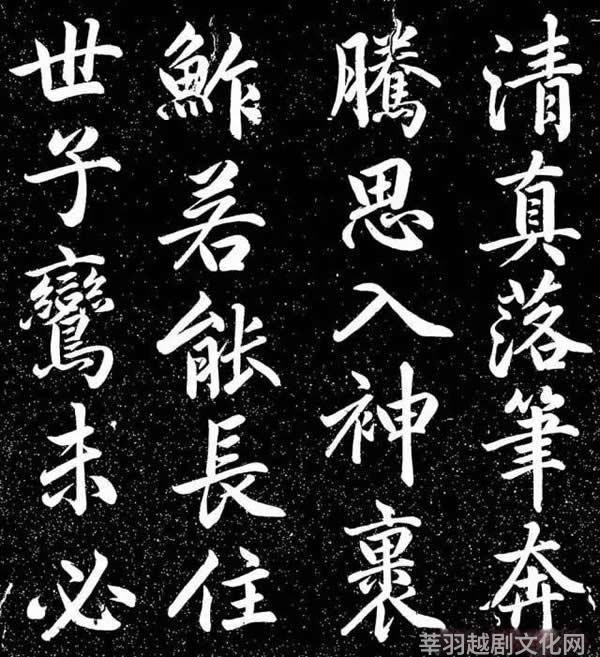 清真落筆奔
騰思入神裏
鮓若能長住
世子鸞未必
莘羽越剧文化网